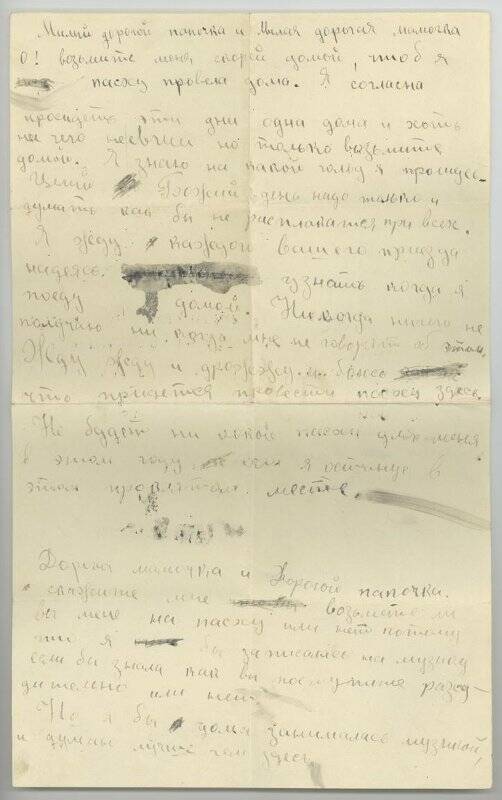 Милый дорогой папочка и милая дорогая мамочка
О! возьмите меня скорей домой, чтоб я
пасху провела дома. Я согласна
просидеть эти дни одна дома и хоть
но только возьмите
домой. Я знаю на какой
Целый Божий день надо только и
думать как бы не расплакатся при всех.
Я жду каждого вашего приезда
надеясь узнать когда я
поеду домой. Никогда ничего не
получаю ни когда мне не говорят об этом.
Жду жду и дрожжу и боюсь
что придется провести пасху здесь.
Не будет ни какой пасхи для меня
в этом году если я останусь в
этом проклятом месте.
Дорога мамочка и Дорогой папочка.
скажите мне возьмете ли
вы меня на пасху или нет потому
что я бы записалась на музыку
если бы знала как вы поступите
или нет.
Но я бы дома занималась музыкой,
и думаю лучше чем здесь